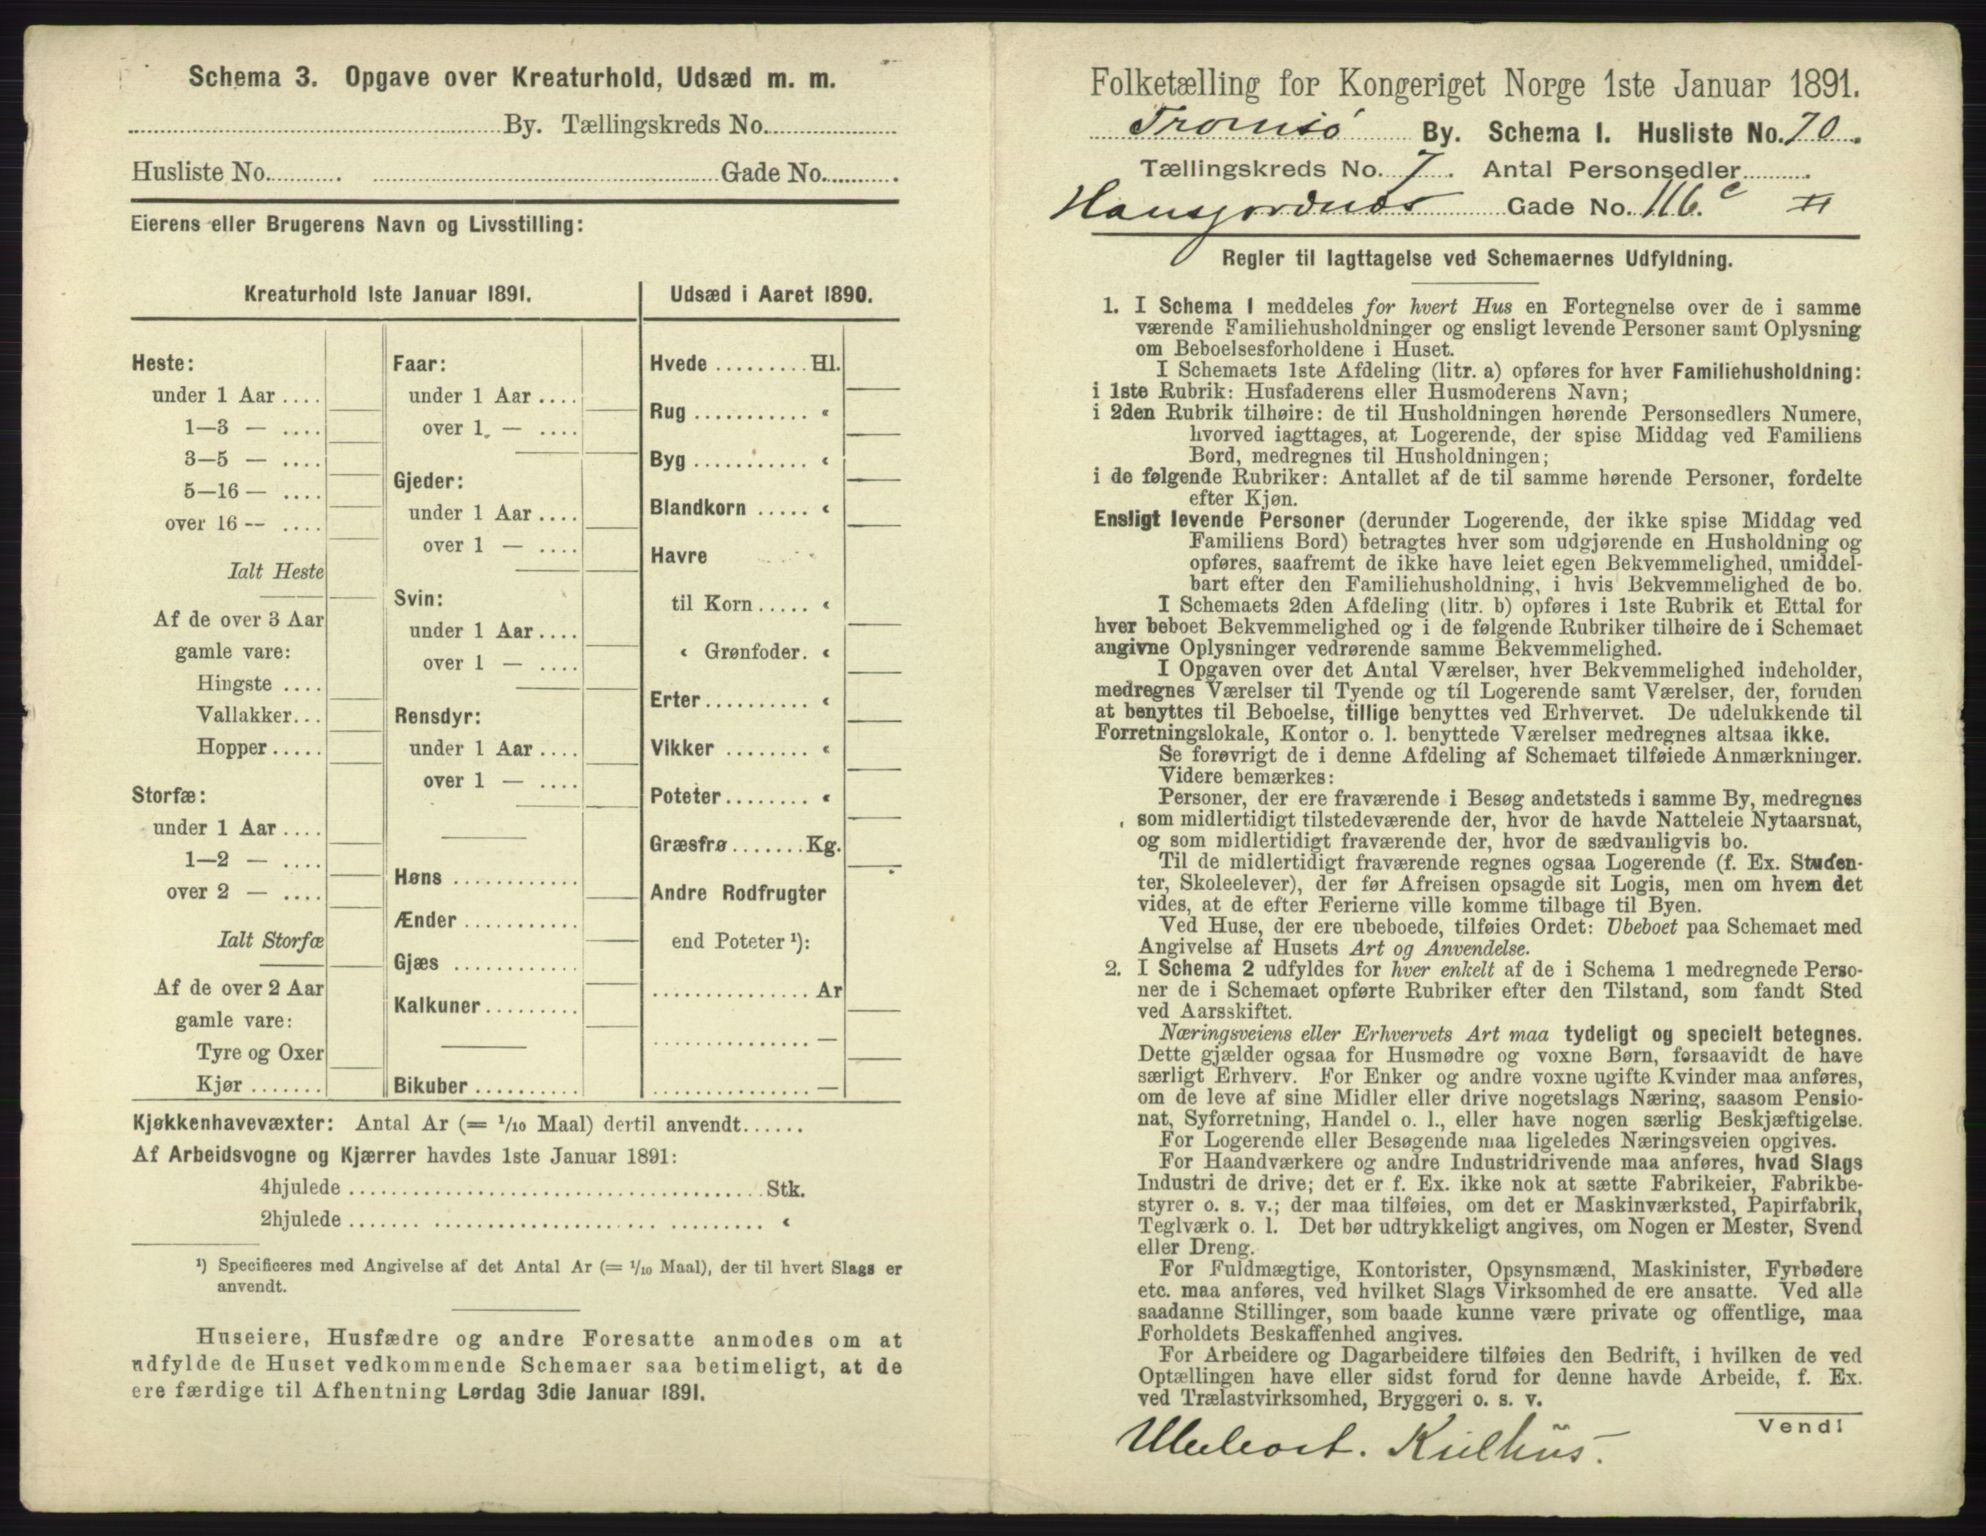 Schema 3. Opgave over Kreaturhold, Udsæd m. m.
By. Tællingskreds No.
Husliste No. Gade No.
Eierens eller Brugerens Navn og Livsstilling:
Kreaturhold 1ste Januar 1891.
Heste:
under 1 Aar
1—3 —
3—5 —
5—16 —
over 16 —
Ialt Heste
Af de over 3 Aar
gamle vare:
Hingste
Vallakker
Hopper
Storfæ:
under 1 Aar
1—2 —
over 2 —
Ialt Storfæ
Af de over 2 Aar
gamle vare:
Tyre og Oxer
Kjør
Faar:
under 1 Aar
over 1 —
Gjeder:
under 1 Aar
over 1 —
Svin:
under 1 Aar
over 1 —
Rensdyr:
under 1 Aar
over 1 —
Høns
Ænder
Gjæs
Kalkuner
Bikuber
Udsæd i Aaret 1890.
Hvede Hl.
Rug «
Byg «
Blandkorn «
Havre
til Korn «
« Grønfoder «
Erter «
Vikker «
Poteter «
Græsfrø Kg.
Andre Rodfrugter
end Poteter ¹):
Ar
—
—
Kjøkkenhavevæxter: Antal Ar (= 1/10 Maal) dertil anvendt
Af Arbeidsvogne og Kjærrer havdes 1ste Januar 1891:
4hjulede Stk.
2hjulede «
¹) Specificeres med Angivelse af det Antal Ar (= 1/10 Maal), der til hvert Slags er
anvendt.
Huseiere, Husfædre og andre Foresatte anmodes om at
udfylde de Huset vedkommende Schemaer saa betimeligt, at de
ere færdige til Afhentning Lørdag 3die Januar 1891.
Folketælling for Kongeriget Norge 1ste Januar 1891.
Tromsö By. Schema 1. Husliste No. 70.
Tællingskreds No. 7. Antal Personsedler
Hansjordnæs Gade No. 116.c II
Regler til Iagttagelse ved Schemaernes Udfyldning.
1. I Schema 1 meddeles for hvert Hus en Fortegnelse over de i samme
værende Familiehusholdninger og ensligt levende Personer samt Oplysning
om Beboelsesforholdene i Huset.
I Schemaets 1ste Afdeling (litr. a) opføres for hver Familiehusholdning:
i 1ste Rubrik: Husfaderens eller Husmoderens Navn;
i 2den Rubrik tilhøire: de til Husholdningen hørende Personsedlers Numere,
hvorved iagttages, at Logerende, der spise Middag ved Familiens
Bord, medregnes til Husholdningen;
i de følgende Rubriker: Antallet af de til samme hørende Personer, fordelte
efter Kjøn.
Ensligt levende Personer (derunder Logerende, der ikke spise Middag ved
Familiens Bord) betragtes hver som udgjørende en Husholdning og
opføres, saafremt de ikke have leiet egen Bekvemmelighed, umiddel-
bart efter den Familiehusholdning, i hvis Bekvemmelighed de bo.
I Schemaets 2den Afdeling (litr. b) opføres i 1ste Rubrik et Ettal for
hver beboet Bekvemmelighed og i de følgende Rubriker tilhøire de i Schemaet
angivne Oplysninger vedrørende samme Bekvemmelighed.
I Opgaven over det Antal Værelser, hver Bekvemmelighed indeholder,
medregnes Værelser til Tyende og til Logerende samt Værelser, der, foruden
at benyttes til Beboelse, tillige benyttes ved Erhvervet. De udelukkende til
Forretningslokale, Kontor o. l. benyttede Værelser medregnes altsaa ikke.
Se forøvrigt de i denne Afdeling af Schemaet tilføiede Anmærkninger.
Videre bemærkes:
Personer, der ere fraværende i Besøg andetsteds i samme By, medregnes
som midlertidigt tilstedeværende der, hvor de havde Natteleie Nytaarsnat,
og som midlertidigt fraværende der, hvor de sædvanligvis bo.
Til de midlertidigt fraværende regnes ogsaa Logerende (f. Ex. Studen-
ter, Skoleelever), der før Afreisen opsagde sit Logis, men om hvem det
vides, at de efter Ferierne ville komme tilbage til Byen.
Ved Huse, der ere ubeboede, tilføies Ordet: Ubeboet paa Schemaet med
Angivelse af Husets Art og Anvendelse.
2. I Schema 2 udfyldes for hver enkelt af de i Schema 1 medregnede Perso-
ner de i Schemaet opførte Rubriker efter den Tilstand, som fandt Sted
ved Aarsskiftet.
Næringsveiens eller Erhvervets Art maa tydeligt og specielt betegnes.
Dette gjælder ogsaa for Husmødre og voxne Børn, forsaavidt de have
særligt Erhverv. For Enker og andre voxne ugifte Kvinder maa anføres,
om de leve af sine Midler eller drive nogetslags Næring, saasom Pensio-
nat, Syforretning, Handel o. l., eller have nogen særlig Beskjæftigelse.
For Logerende eller Besøgende maa ligeledes Næringsveien opgives.
For Haandværkere og andre Industridrivende maa anføres, hvad Slags
Industri de drive; det er f. Ex. ikke nok at sætte Fabrikeier, Fabrikbe-
styrer o. s. v.; der maa tilføies, om det er Maskinværksted, Papirfabrik,
Teglværk o. l. Det bør udtrykkeligt angives, om Nogen er Mester, Svend
eller Dreng.
For Fuldmægtige, Kontorister, Opsynsmænd, Maskinister, Fyrbødere
etc. maa anføres, ved hvilket Slags Virksomhed de ere ansatte. Ved alle
saadanne Stillinger, som baade kunne være private og offentlige, maa
Forholdets Beskaffenhed angives.
For Arbeidere og Dagarbeidere tilføies den Bedrift, i hvilken de ved
Optællingen have eller sidst forud for denne havde Arbeide, f. Ex.
ved Trælastvirksomhed, Bryggeri o. s. v.
Vend!
Ubeboet. Kulhus.